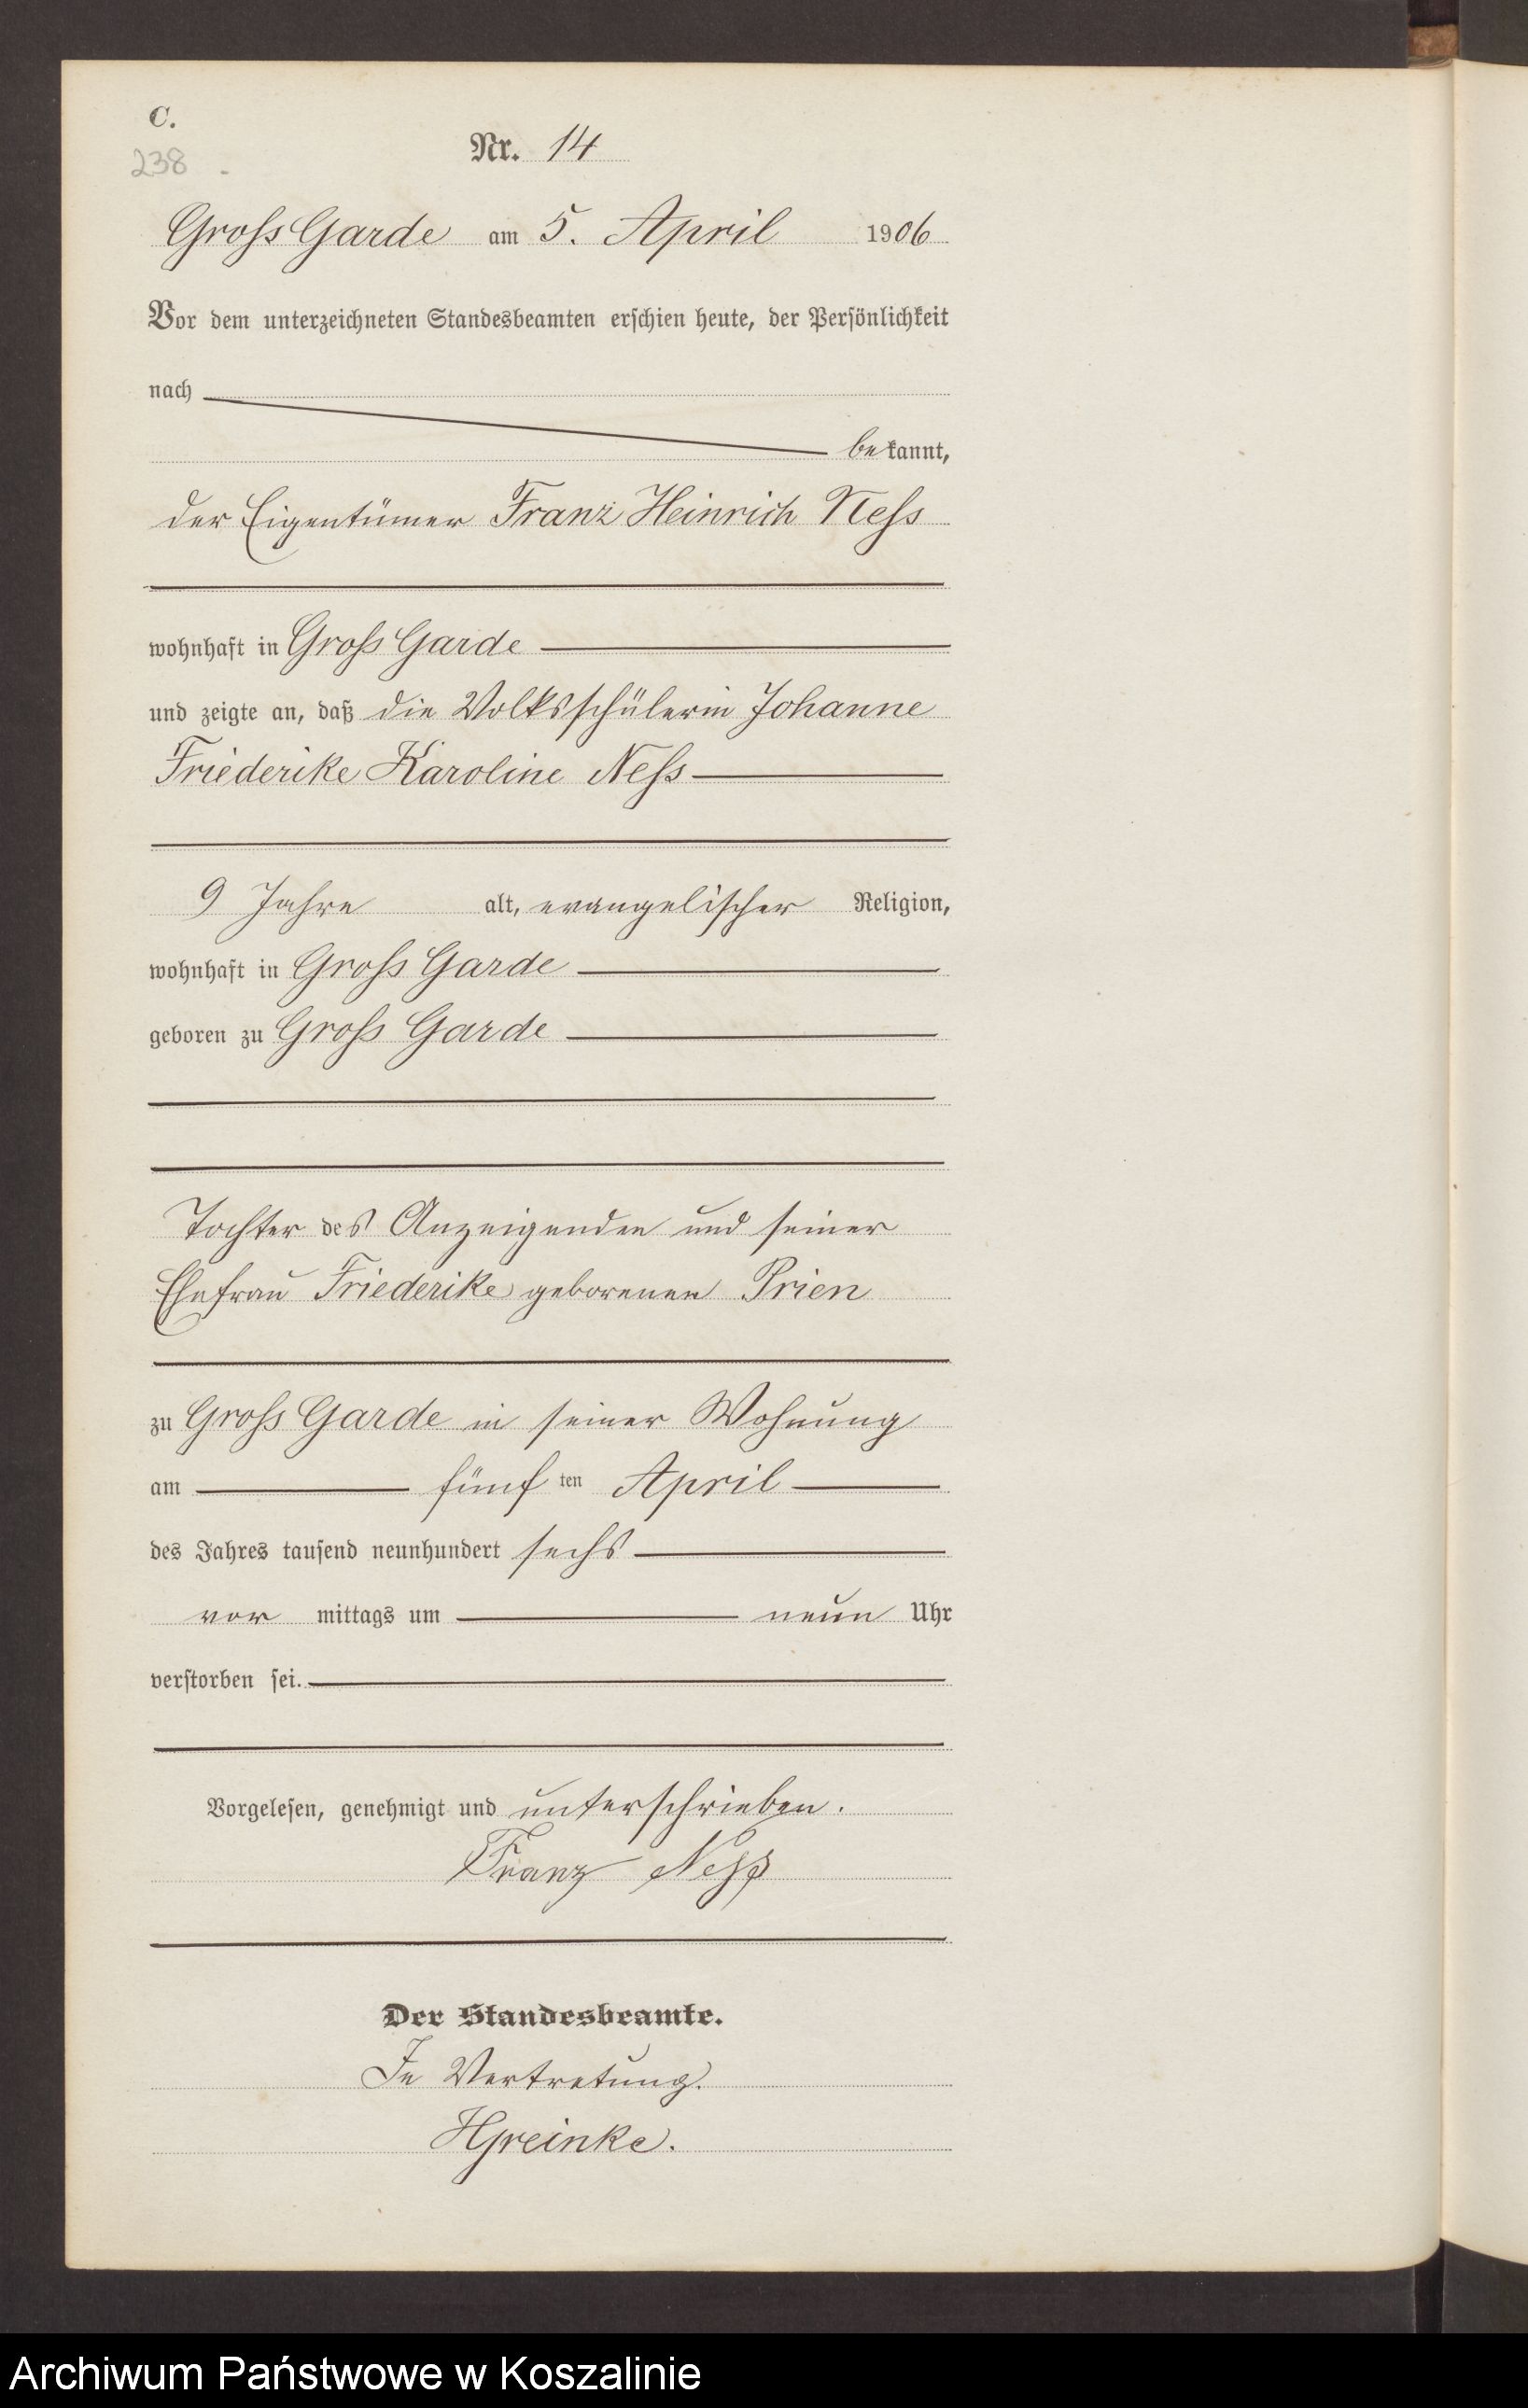 C.
238
Nr. 14
Gross Garde am 5. April 1906
Vor dem unterzeichneten Standesbeamten erschien heute, der Persönlichkeit
nach
bekannt,
der Eigentümer Franz Heinrich Ness
wohnhaft in Gross Garde
und zeigte an, daß die Volksschülerin Johanne
Friederike Karoline Ness
9 Jahre alt, evangelischer Religion,
wohnhaft in Gross Garde
geboren zu Gross Garde
Tochter des Anzeigenden und seiner
Ehefrau Friederike geborenen Prien
zu Gross Garde in seiner Wohnung
am fünf ten April
des Jahres tausend neunhundert sechs
vor mittags um neun Uhr
verstorben sei.
Vorgelesen, genehmigt und unterschrieben.
Franz Neß
Der Standesbeamte.
In Vertretung.
Archiwum Państwowe w Koszalinie